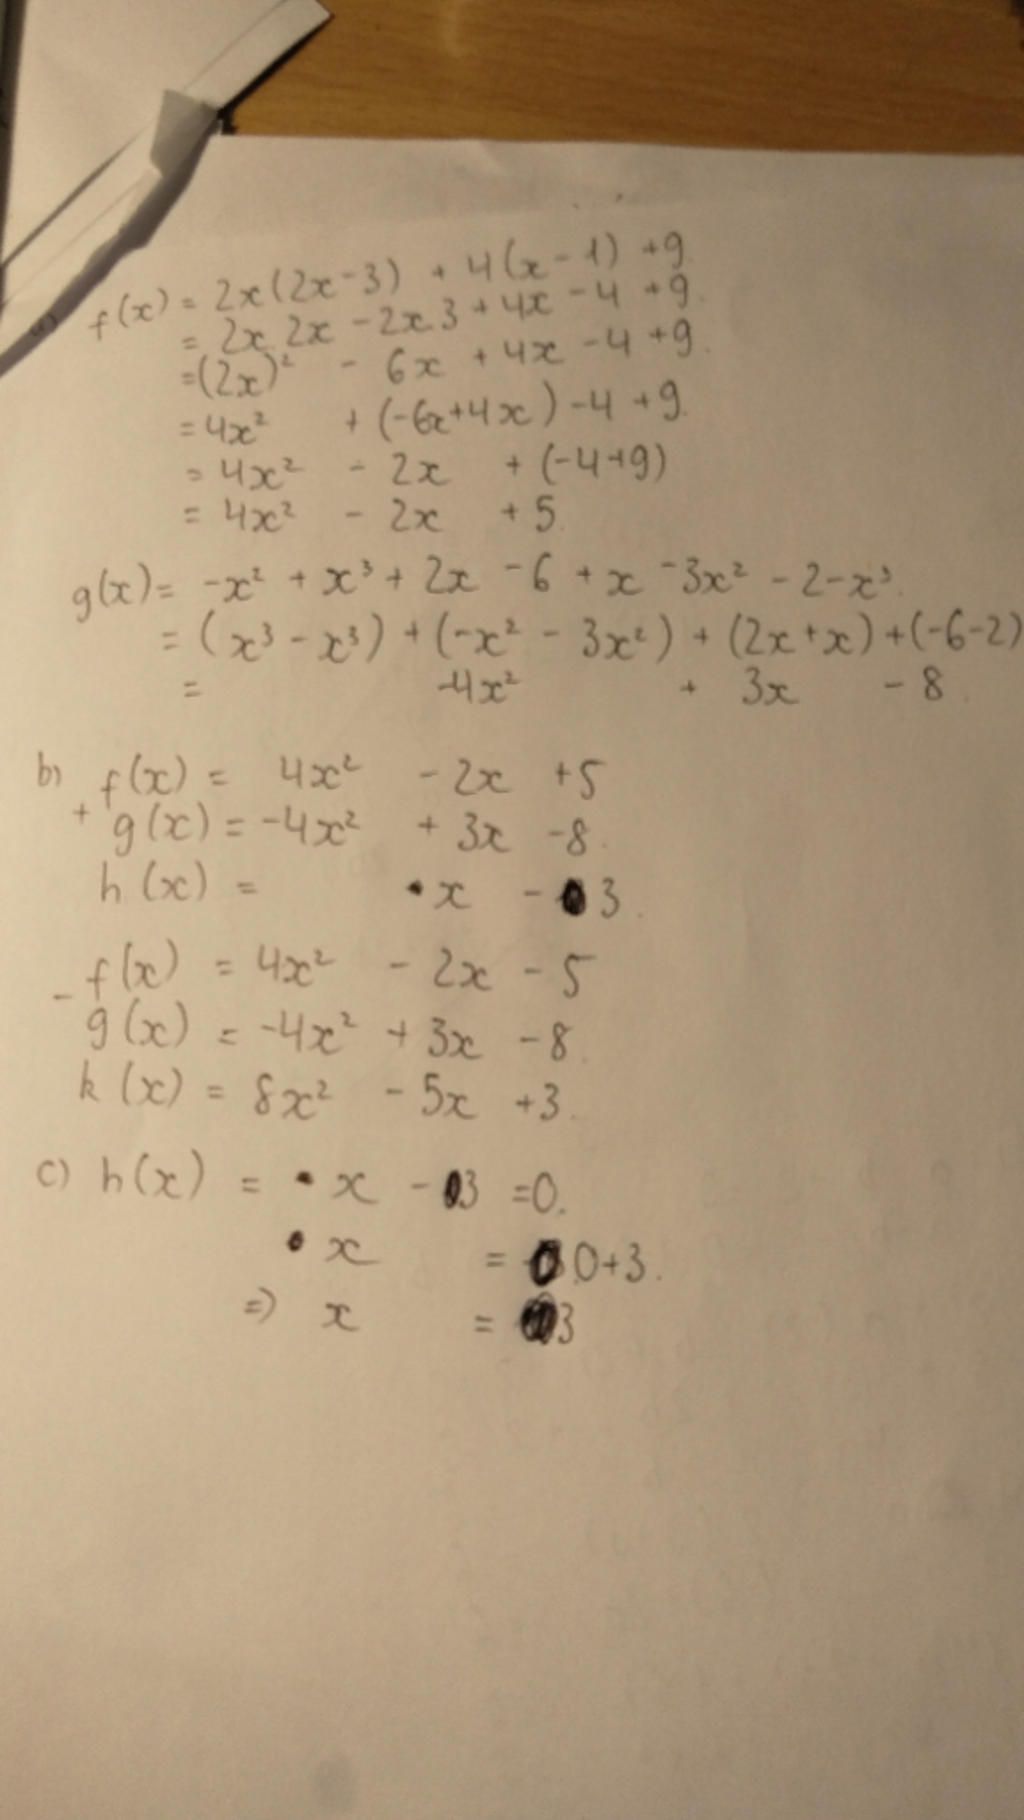 a) f(x) = 2x(2x-3) + 4(x-1) +9.
= 2x.2x - 2x.3 + 4x - 4 +9.
=(2x)² - 6x + 4x -4 +9.
= 4x² + (-6x+4x) -4 +9.
= 4x² - 2x + (-4+9)
= 4x² - 2x + 5.
g(x)= -x² + x³ + 2x -6 + x -3x² -2-x³.
= (x³ - x³) + (-x² - 3x²) + (2x+x) +(-6-2)
= -4x² + 3x - 8.
b) f(x) = 4x² - 2x +5
+ g(x) = -4x² + 3x -8.
h(x) = x - 3.
- f(x) = 4x² - 2x - 5
g(x) = -4x² + 3x -8.
k(x) = 8x² - 5x +3.
c) h(x) = x - 3 =0.
x = 0+3.
=> x = 3